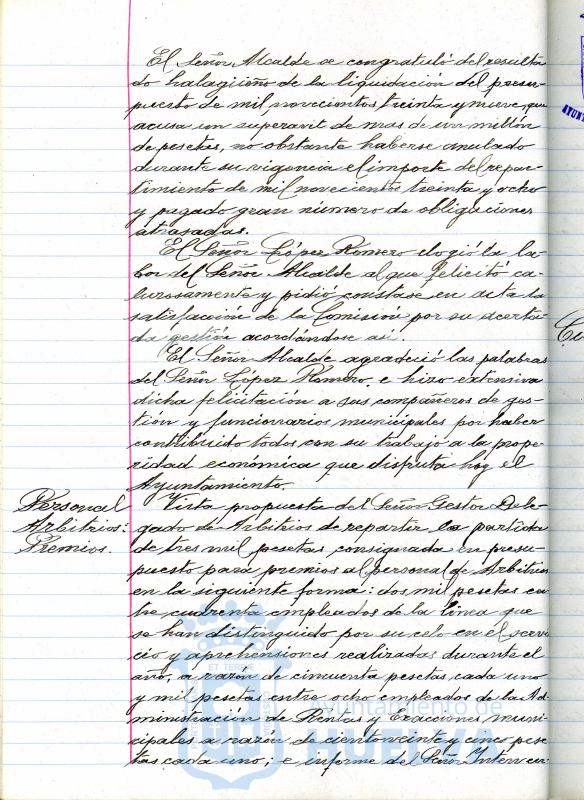 El Señor Alcalde se congratuló del resulta
do halagüeño de la liquidación del presu-
puesto de mil novecientos treinta y nueve, que
acusa un superavit de mas de un millón
de pesetas, no obstante haberse anulado
durante su vigencia el importe del repar-
timiento de mil novecientos treinta y ocho
y pagado gran número de obligaciones
atrasadas.
El Señor López Romero elogió la la-
bor del Señor Alcalde al que felicitó ca-
lurosamente y pidió constase en acta la
satisfacción de la Comisión por su acerta-
da gestión acordándose así.
El Señor Alcalde agradeció las palabras
del Señor López Romero e hizo extensiva
dicha felicitación a sus compañeros de ges-
tión y funcionarios municipales por haber
contribuido todos con su trabajo a la prope-
ridad economica que disfruta hoy el
Ayuntamiento.
Personal
Arbitrios:
Premios.
Vista propuesta del Señor Gestor Dele-
gado de Arbitrios de repartir la partida
de tres mil pesetas consignada en presu-
puesto para premios al personal de Arbitrios
en la siguiente forma: dos mil pesetas en-
tre cuarenta empleados de la linea que
se han distinguido por su celo en el servi
cio y aprehensiones realizadas durante el
año, a razón de cincuenta pesetas cada uno
y mil pesetas entre ocho empleados de la Ad-
ministración de Rentas y Exacciones muni-
cipales a razón de ciento veinte y cinco pese
tas cada uno; e informe del Señor Interven-
Ayuntamiento de
HUELVA